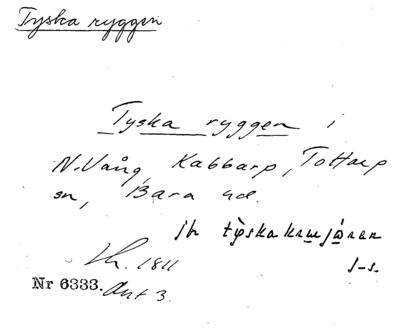 Tyska ryggen
Tyska ryggen i
N. Vång, Kabbarp, Tottarp
sn, Bara hd.
jb
J-s.
Lh. 1811
Nr 6333. Akt 3.